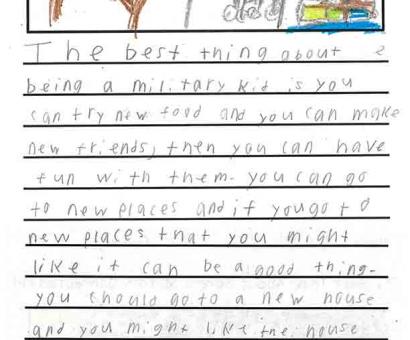 dad
The best thing about
being a military kid is you
can try new food and you can make
new friends, then you can have
fun with them. you can go
to new places and if you go to
new places that you might
like it can be a good thing.
you should go to a new house
and you might like the house